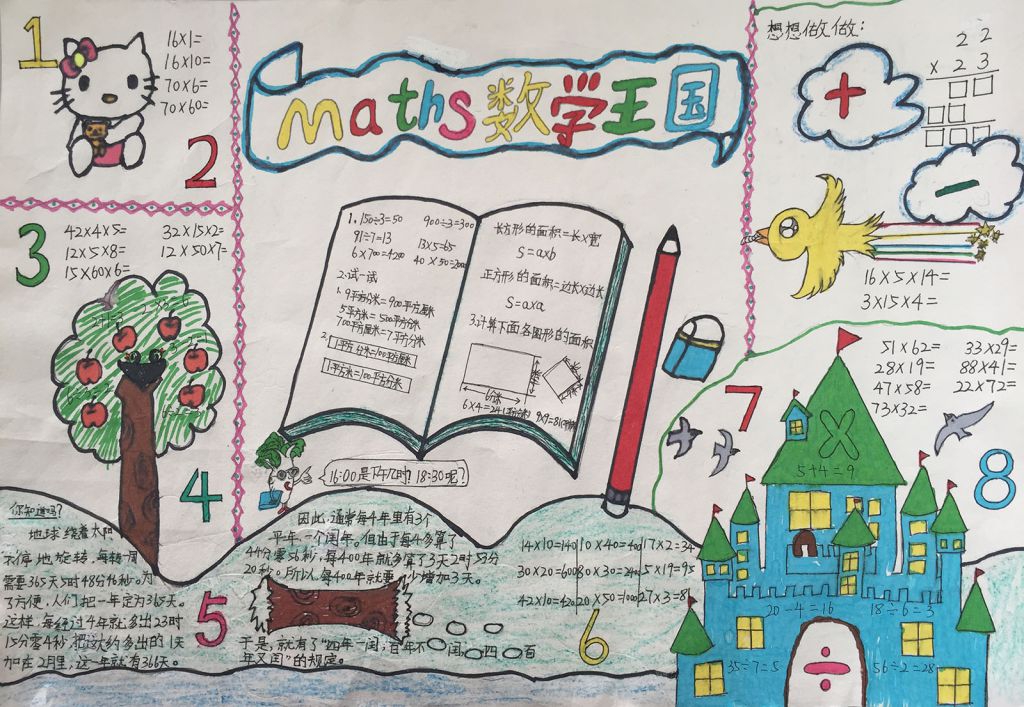 1
16×1=
16×10=
70×6=
70×60=
2
maths数学王国
想想做做:
22
×23
+
−
3
42×4×5= 32×15×2=
12×5×8= 12×50×7=
15×60×6=
1.150÷3=50 900÷3=300
91÷7=13 13×5=65
6×700=4200
2.试一试
1.9平方分米=900平方厘米
5平方米=500平方分米
700平方厘米=7平方分米
2.1平方分米=100平方厘米
1平方米=100平方分米
长方形的面积=长×宽
S=a×b
正方形的面积=边长×边长
S=a×a
3.计算下面各图形的面积
6分米
6×4=24
16×5×14=
3×15×4=
51×62= 33×29=
28×19= 88×41=
47×58= 22×72=
73×32=
7
8
4
16:00是下午几时?18:30呢?
×
5+4=9
20-4=16 18÷6=3
35÷7=5 56÷2=28
÷
你知道吗?
地球绕着太阳
不停地旋转,每转一周
需要365天5时48分46秒。为
了方便,人们把一年定为365天。
这样,每经过4年就多出23时
15分零4秒,把这约多出的1天
加在2月里,这一年就有366天。
5
因此,通常每4年里有3个
平年、一个闰年。但由于每4年多算了
44分零56秒,每400年就多算了3天2时53分
20秒。所以,每400年就要少增加3天。
于是,就有了“四年一闰,百年不闰,四百
年又闰”的规定。
14×10=140 10×40=400 17×2=34
30×20=600 80×30=240 5×19=95
42×10=420 20×50=1000 27×3=81
6